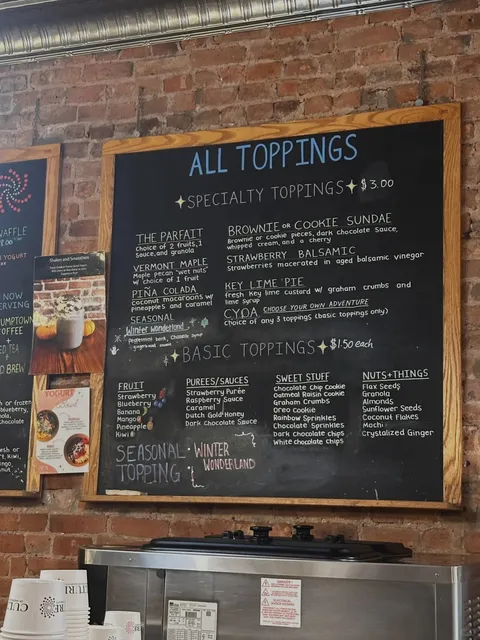 ALL TOPPINGS
SPECIALTY TOPPINGS $3.00
THE PARFAIT
Choice of 2 fruits, 1
Sauce, and granola
VERMONT MAPLE
Maple pecan "wet nuts"
w/ choice of 1 fruit
PIÑA COLADA
Coconut macaroons w/
Pineapples and caramel
SEASONAL
Winter Wonderland
BROWNIE OR COOKIE SUNDAE
Brownie or cookie pieces, dark chocolate sauce,
whipped cream, and a cherry
STRAWBERRY BALSAMIC
Strawberries macerated in aged balsamic vinegar
KEY LIME PIE
Fresh Key lime custard w/ graham crumbs and
lime syrup
CYOA CHOOSE YOUR OWN ADVENTURE
Choice of any 3 toppings (basic toppings only)
BASIC TOPPINGS $1.50 each
FRUIT
Strawberry
Blueberry
Banana
Mango
Pineapple
Kiwi
PUREES/SAUCES
Strawberry Purée
Raspberry Sauce
Caramel
Dutch Gold Honey
Dark Chocolate Sauce
SWEET STUFF
Chocolate Chip Cookie
Oatmeal Raisin Cookie
Graham Crumbs
Oreo Cookie
Rainbow Sprinkles
Chocolate Sprinkles
Dark Chocolate Chips
White Chocolate Chips
NUTS+THINGS
Flax Seeds
Granola
Almonds
Sunflower Seeds
Coconut Flakes
Mochi
Crystalized Ginger
SEASONAL
TOPPING
WINTER
WONDERLAND
WAFFLE
YOGURT
NOW
COFFEE
Shakes and Smoothies
YOGURT
DANGER